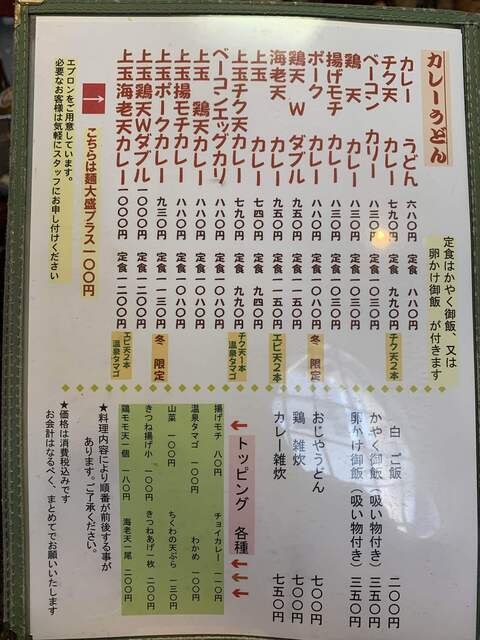 カレーうどん
定食はかやく御飯 又は
卵かけ御飯 が付きます
カレー うどん 六八〇円 定食 八八〇円
チク天 カレー 七九〇円 定食 九九〇円 チク天2本
ベーコン カリー 八三〇円 定食 一〇三〇円
鶏 天 カレー 八三〇円 定食 一〇三〇円
揚げモチ カレー 八三〇円 定食 一〇三〇円
ポーク カレー 八八〇円 定食 一〇八〇円 冬 限定
鶏天 W ダブル 九五〇円 定食 一一五〇円
海老天 カレー 九五〇円 定食 一一五〇円 エビ天2本
上玉 カレー 七四〇円 定食 九四〇円
上玉チク天カレー 七九〇円 定食 九九〇円 チク天1本 温泉タマゴ
ベーコンエッグカリ 八八〇円 定食 一〇八〇円
上玉 鶏天カレー 八八〇円 定食 一〇八〇円
上玉揚モチカレー 八八〇円 定食 一〇八〇円
上玉ポークカレー 九三〇円 定食 一一三〇円 冬 限定
上玉鶏天Wダブル 一〇〇〇円 定食 一二〇〇円
上玉海老天カレー 一〇〇〇円 定食 一二〇〇円 エビ天2本 温泉タマゴ
こちらは麺大盛プラス一〇〇円
エプロンをご用意しています。
必要なお客様は気軽にスタッフにお申し付けください
白 ご飯 二〇〇円
かやく御飯(吸い物付き) 三五〇円
卵かけ御飯(吸い物付き) 三五〇円
おじやうどん 七〇〇円
鶏 雑炊 七〇〇円
カレー雑炊 七五〇円
トッピング 各種
揚げモチ 八〇円 チョイカレー 一一〇円
温泉タマゴ 一〇〇円 わかめ 一〇〇円
山菜 一〇〇円 ちくわの天ぷら 一三〇円
きつね揚げ小 一〇〇円 きつねあげ一枚 二〇〇円
鶏モモ天一個 一八〇円 海老天一尾 二〇〇円
★料理内容により順番が前後する事が
あります。ご了承ください。
★価格は消費税込みです
お会計はなるべく、まとめてでお願いいたします